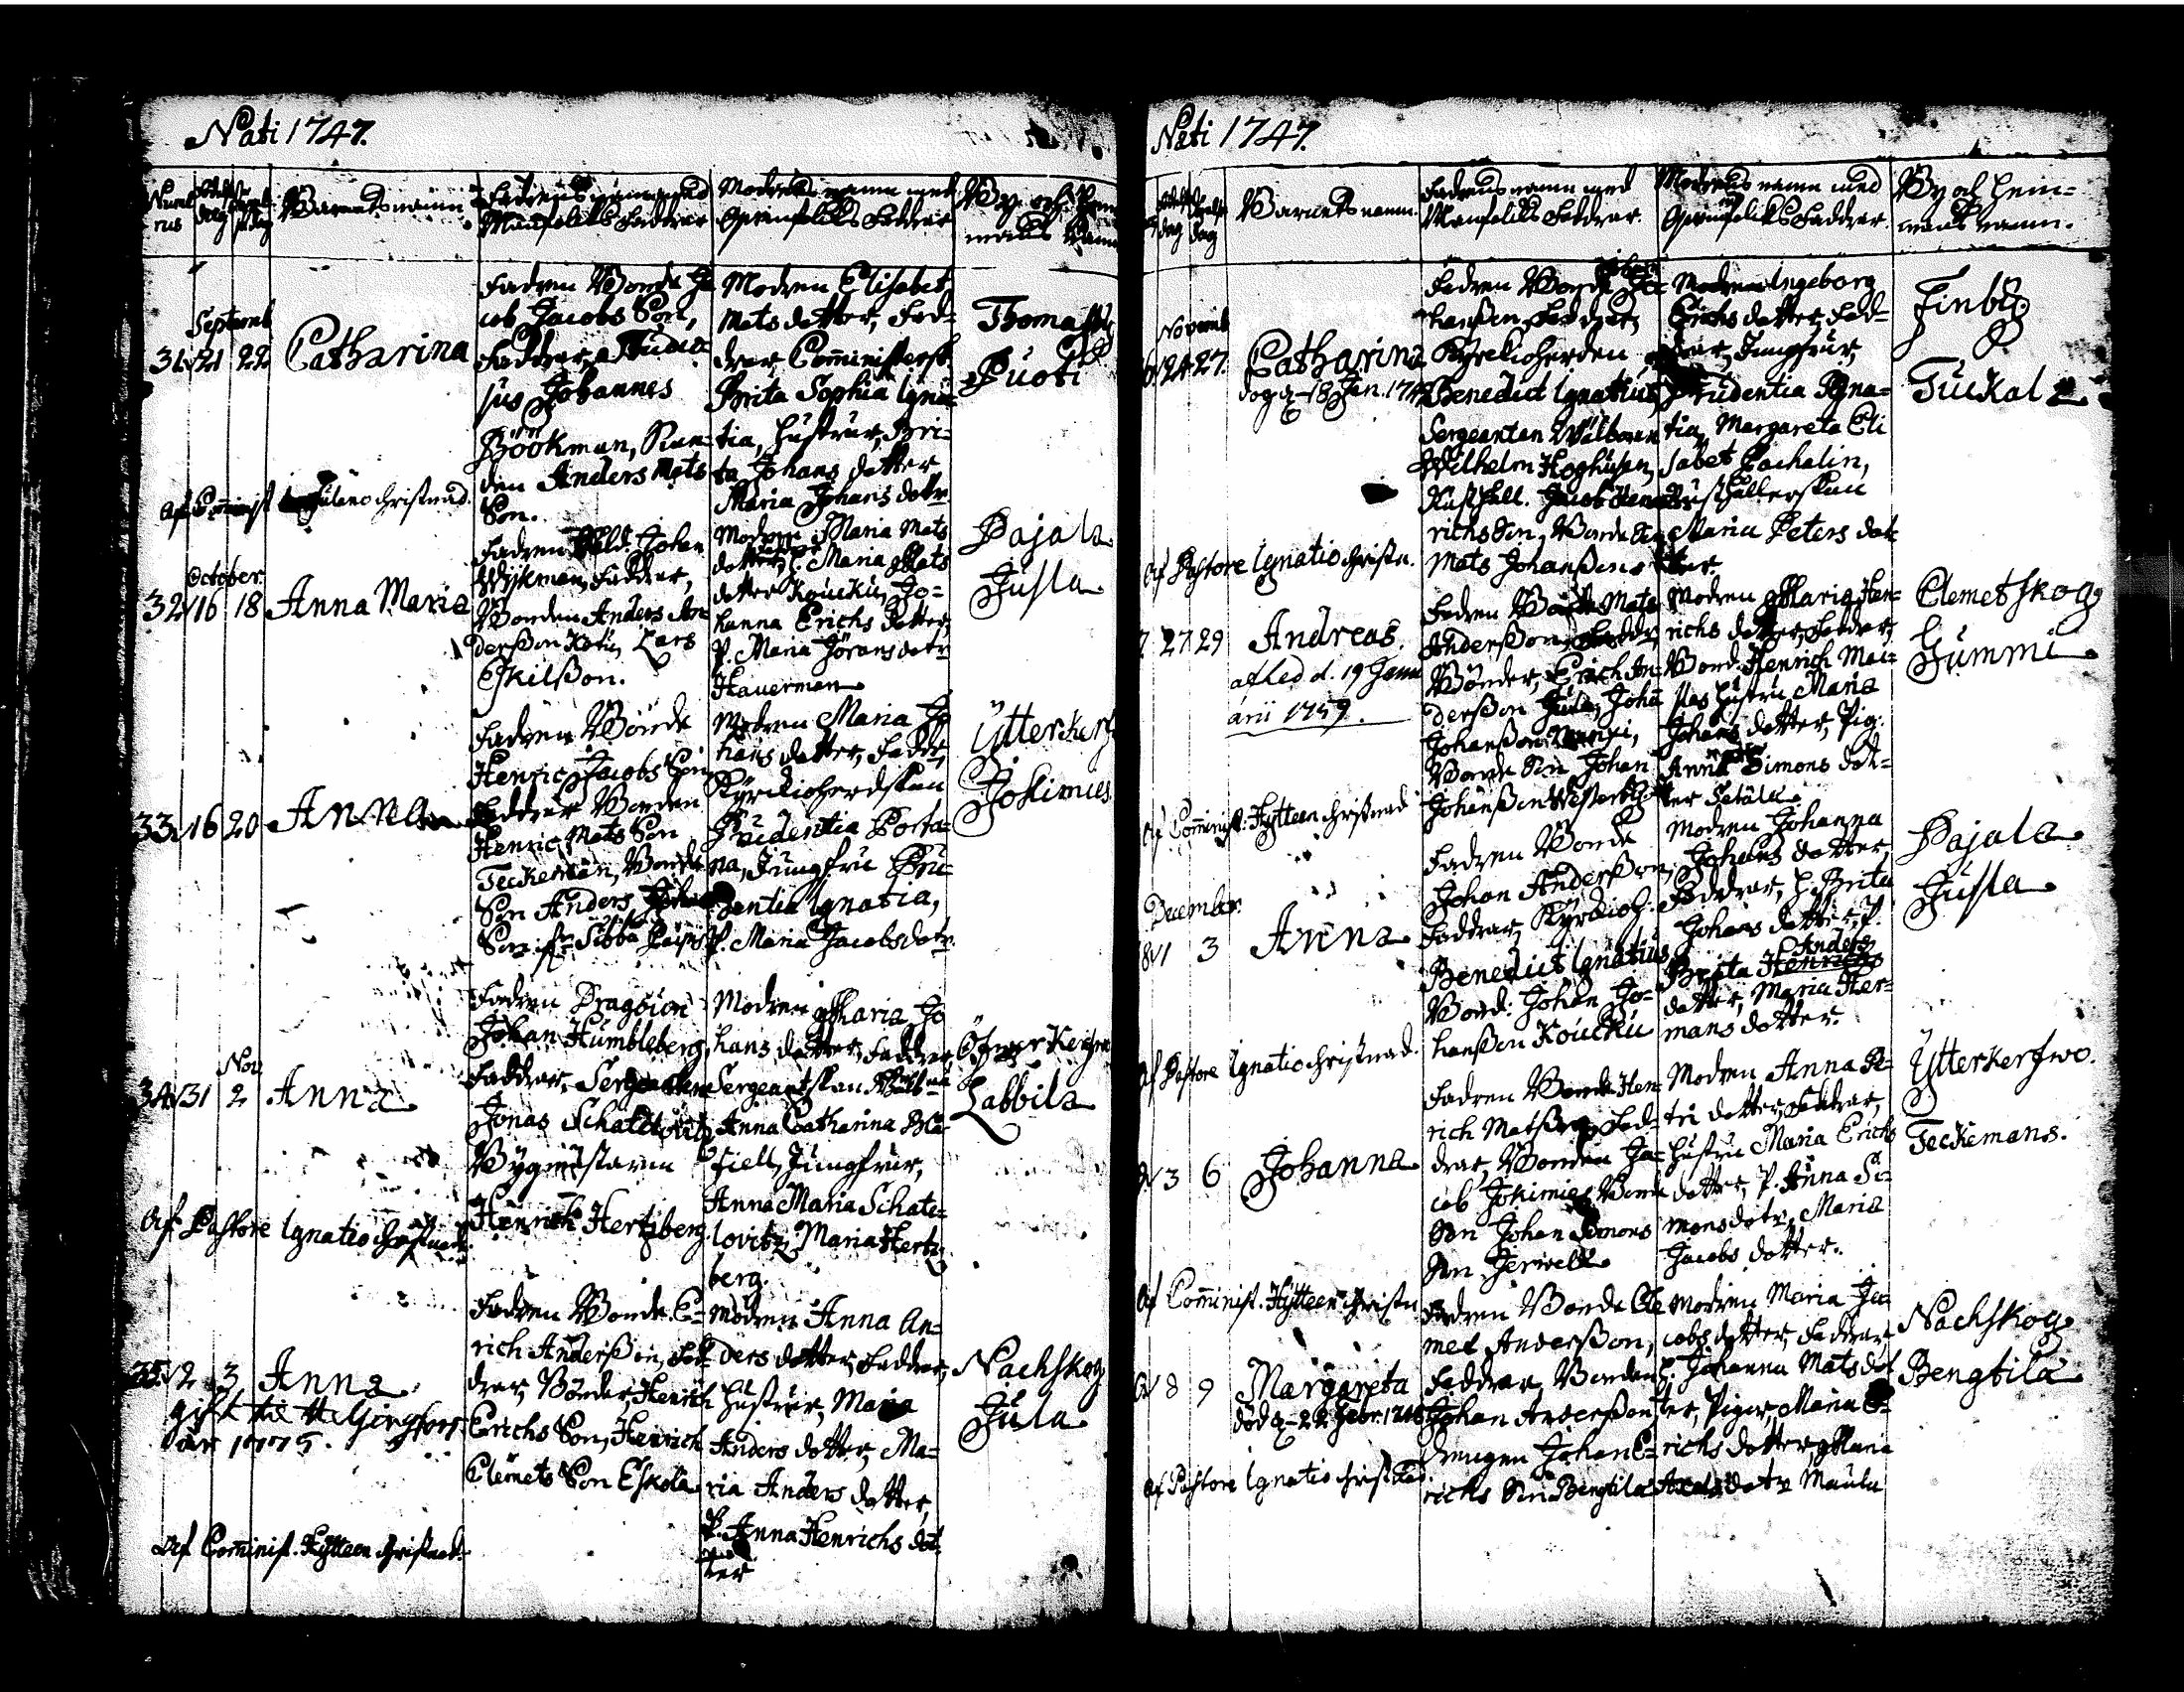 Nati 1747.
Barnets namn
Fadrens namn med
Manfolks Faddrar
Modrens namn med
Qwinfolks Faddrar
By och Hem-
mans namn
Septemb
31 21 22 Catharina
Fadren Bonde Ja
cob Jacobs Son,
Faddrar, Studio-
sus Johannes
Böökman,
den Anders Mats
Son.
Modren Elisabet
Mats dotter, Fad-
drar, Comministersk.
Brita Sophia Igna-
tia, hustrur, Bri-
ta Johans dotter,
Maria Johans dottr
Puoti
christnad.
October
32 16 18 Anna Maria
Fadren Sold. Johan
Wijkman, Faddrar,
Bonden Anders An
derßon Lars
Eskilßon.
Modren Maria Mats
dotter, Maria Mats
dotter Koucku, Jo-
hanna Erichs dotter,
P. Maria Jörans dottr
Hauerman
Pajala
Jusla
33 16 20 Anna
Fadren Bonde
Henric Jacobs Son
Faddrar Bonden
Henric Mats Son
Teckeman, Bonde
Son Anders
Son
Modren Maria Jo
hans dotter, Faddr,
Kyrckioherdskan
Prudentia Porta-
na, Jungfru Pru-
dentia Ignatia,
P. Maria Jacobs dotr.
Ytterkerf
Jokimies
Nov.
34 31 2 Anna
Fadren Dragoun
Johan Humbleberg,
Faddrar, Sergeanten
Jonas Schatelovitz
Bygmästaren
Henrich Hertzberg
Modren Maria Jo
hans dotter, Faddrar
Sergeantskan
Anna Catharina Blå
fiell, Jungfrur,
Anna Maria Schate-
lovitz, Maria Hertz
berg.
Labbila
Af Pastore Ignatio christnad.
35 2 3 Anna
gift til Helsingfors
år 1775.
Fadren Bonde E-
rich Anderßon, Fad-
drar, Bönder, Henrich
Erichs Son, Henrich
Clemets Son Eskola
Modren Anna An-
ders dotter, Faddrar,
hustrur, Maria
Anders dotter, Ma-
ria Anders dotter,
P. Anna Henrichs dot
ter
Nachskog
Jula
Af Comminist. Hytteen christnad.
Nati 1747.
Barnets namn.
Fadrens namn med
Manfolks Faddrar.
Modrens namn med
Qwinfolks Faddrar.
By och Hem-
mans namn.
Novemb
24 27. Catharina
dog d. 18 Jan.
Fadren Bonde Jo-
hanßon, Faddrar,
Kyrckioherden
Benedict Ignatius,
Sergeanten Wälboren
Wilhelm Hoghusen,
Rusthåll. Jacob Hen
richs Son, Bonde Son
Mats Johanßon
Modren Ingeborg
Erichs dotter, Fad-
drar, Jungfrur,
Prudentia Igna-
tia, Margareta Eli
sabet Pachalin,
Rusthållerskan
Maria Peters dot-
ter.
Finby
Tuckala
Af Pastore Ignatio christn.
7 27 29 Andreas.
afled d. 19 Janu
arii 1759.
Fadren Bonde Mats
Anderßon, Faddr,
Bönder, Erich An-
derßon Jula, Johan
Johanßon
Bonde Son Johan
Johanßon Westerby
Modren Maria Hen-
richs dotter, Faddrar,
Bond. Henrich Mei-
las hustru Maria
Johans dotter, Pig.
Anna Simons dot-
ter Setälä
Clemetskog
Jummi
Af Comminist. Hytteen christnad
December
8 1 3 Anna
Fadren Bonde
Johan Anderßon,
Faddrar, Kyrckioh.
Benedict Ignatius
Bond. Johan Jo-
hanßon Koucku
Modren Johanna
Johans dotter
Faddrar, h. Brita
Johans dotter, P.
Anders
Brita Henrichs
dotter, Maria Her-
mans dotter.
Pajala
Jusla
Af Pastore Ignatio christnad.
9 3 6 Johanna
Fadren Bonde Hen-
rich Matßon, Fad-
drar, Bonden Ja-
cob Jokimies, Bonde
Son Johan Simons
Son Jerwelä
Modren Anna Pe-
tri dotter, Faddrar,
hustru Maria Erichs
dotter, P. Anna Si-
mons dotr, Maria
Jacobs dotter.
Ytterkerfwo.
Teckemans.
Af Comminist. Hytteen christn
8 9 Margareta
död d. 22 Febr. 1748
Fadren Bonde Cle
met Anderßon,
Faddrar, Bonden
Johan Anderßon
Drengen Johan E-
richs Son Bengtila
Modren Maria Ja-
cobs dotter, Faddrar
h. Johanna Mats dot
ter, Pigor, Maria E-
richs dotter, Maria
dotr Maula
Nachskog
Bengtila
Af Pastore Ignatio christnad.